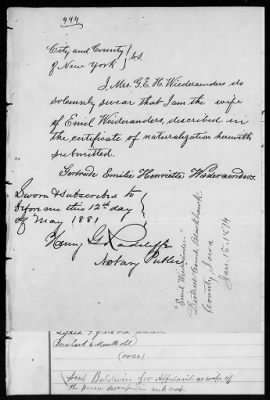 994
City and County
of New York } SS.
I, Mrs. G. E. H. Wiederanders do
solemnly swear that I am the wife
of Emil Weideranders, described in
the certificate of naturalization herewith
submitted.
Gertrude Emilie Henriette Wiederanders.
Sworn & subscribed to
before me this 12th day
of May 1881
Henry G.
Notary Public
"Emil Wiederanders"
District Court
County of Iowa
Jan. 15. 1874
(over)
for Affidavit as wife of